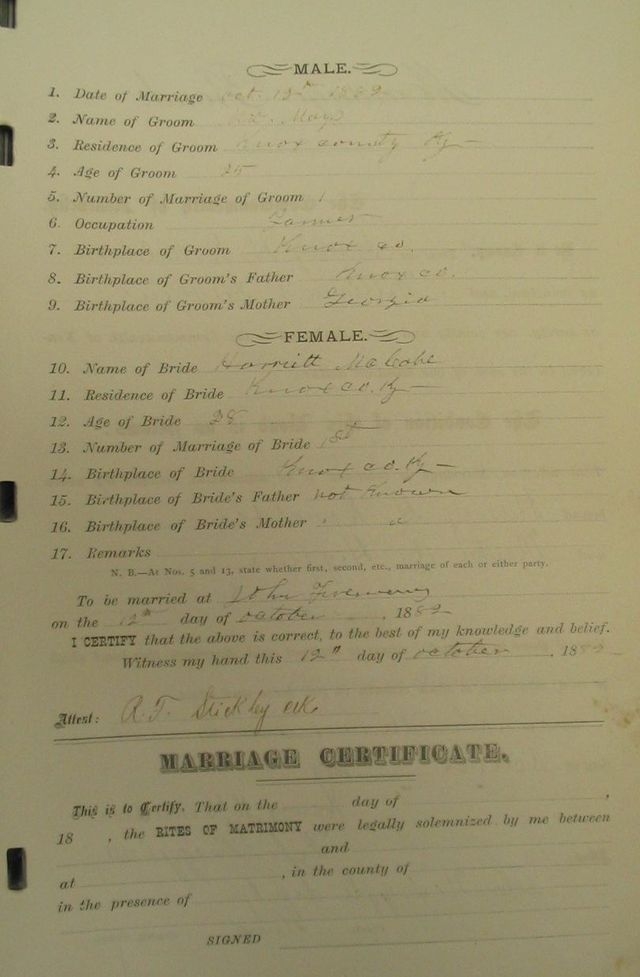 MALE.
1. Date of Marriage oct. 12th 1882
2. Name of Groom Mays
3. Residence of Groom Knox county Ky
4. Age of Groom 25
5. Number of Marriage of Groom 1
6. Occupation Farmer
7. Birthplace of Groom Knox co.
8. Birthplace of Groom's Father Knox co.
9. Birthplace of Groom's Mother Georgia
FEMALE.
10. Name of Bride Harriett McCabe
11. Residence of Bride Knox co. Ky
12. Age of Bride 28
13. Number of Marriage of Bride 1st
14. Birthplace of Bride Knox co. Ky
15. Birthplace of Bride's Father not Known
16. Birthplace of Bride's Mother " "
17. Remarks
N. B.—At Nos. 5 and 13, state whether first, second, etc., marriage of each or either party.
To be married at John
on the 12th day of october, 1882
I CERTIFY that the above is correct, to the best of my knowledge and belief.
Witness my hand this 12" day of october, 1882
Attest: R.T. Stickley clk.
MARRIAGE CERTIFICATE.
This is to Certify, That on the day of ,
18 , the RITES OF MATRIMONY were legally solemnized by me between
and
at , in the county of
in the presence of
SIGNED